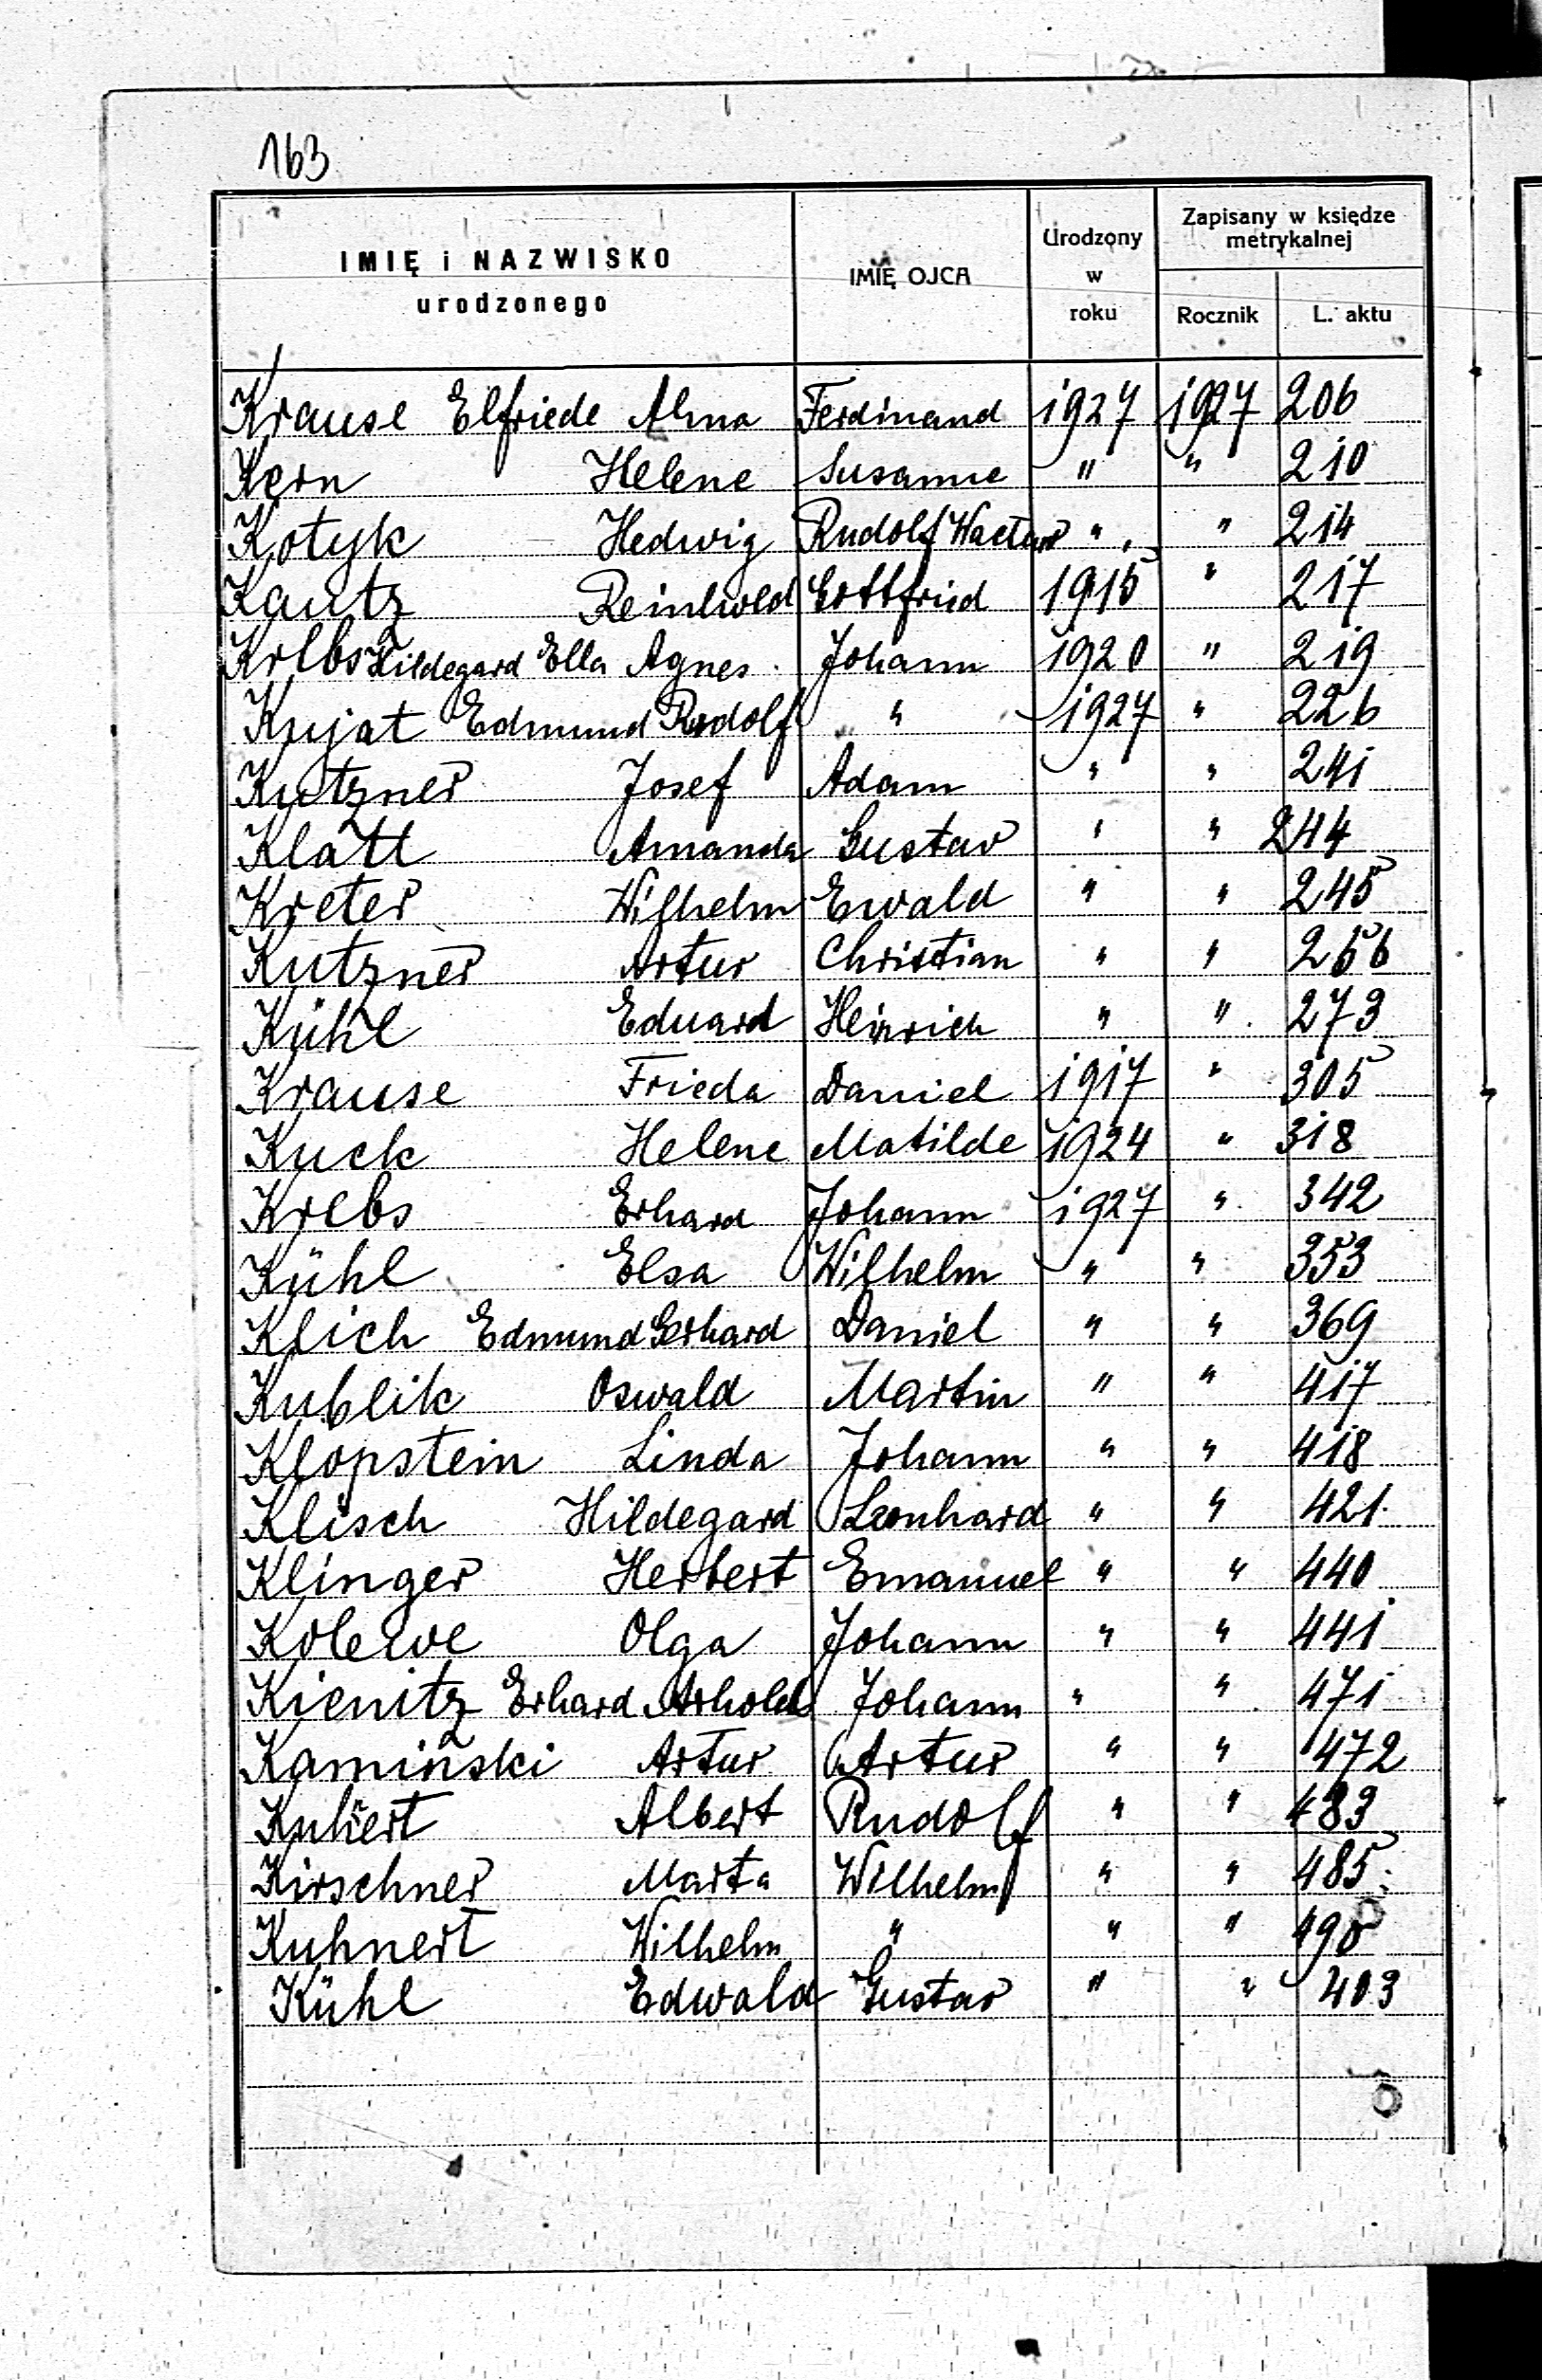 163
IMIĘ i NAZWISKO urodzonego | IMIĘ OJCA | Urodzony w roku | Zapisany w księdze metrykalnej
Rocznik | L. aktu
Krause Elfriede Alma | Ferdinand | 1927 | 1927 | 206
Kern Helene | Susanne | " | " | 210
Kotyk Hedwig | Rudolf Wacław | " | " | 214
Kautz Reinhold | Gottfried | 1915 | " | 217
Krebs Hildegard Ella Agnes | Johann | 1920 | " | 219
Kujat Edmund Rudolf | " | 1927 | " | 226
Kutzner Josef | Adam | " | " | 241
Klatt Amanda | Gustav | " | " | 244
Kreter Wilhelm | Ewald | " | " | 245
Kutzner Artur | Christian | " | " | 256
Kühl Eduard | Heinrich | " | " | 273
Krause Frieda | Daniel | 1917 | " | 305
Kuck Helene | Matilde | 1924 | " | 318
Krebs Erhard | Johann | 1927 | " | 342
Kühl Elsa | Wilhelm | " | " | 353
Klich Edmund Gerhard | Daniel | " | " | 369
Kublik Oswald | Martin | " | " | 417
Klopstein Linda | Johann | " | " | 418
Klisch Hildegard | Leonhard | " | " | 421
Klinger Herbert | Emanuel | " | " | 440
Kolewe Olga | Johann | " | " | 441
Kienitz Erhard Arhold | Johann | " | " | 471
Kamiński Artur | Artur | " | " | 472
Kuhnert Albert | Rudolf | " | " | 483
Kirschner Marta | Wilhelm | " | " | 485
Kuhnert Wilhelm | " | " | "
Kühl Edwald | Gustav | " | " | 403